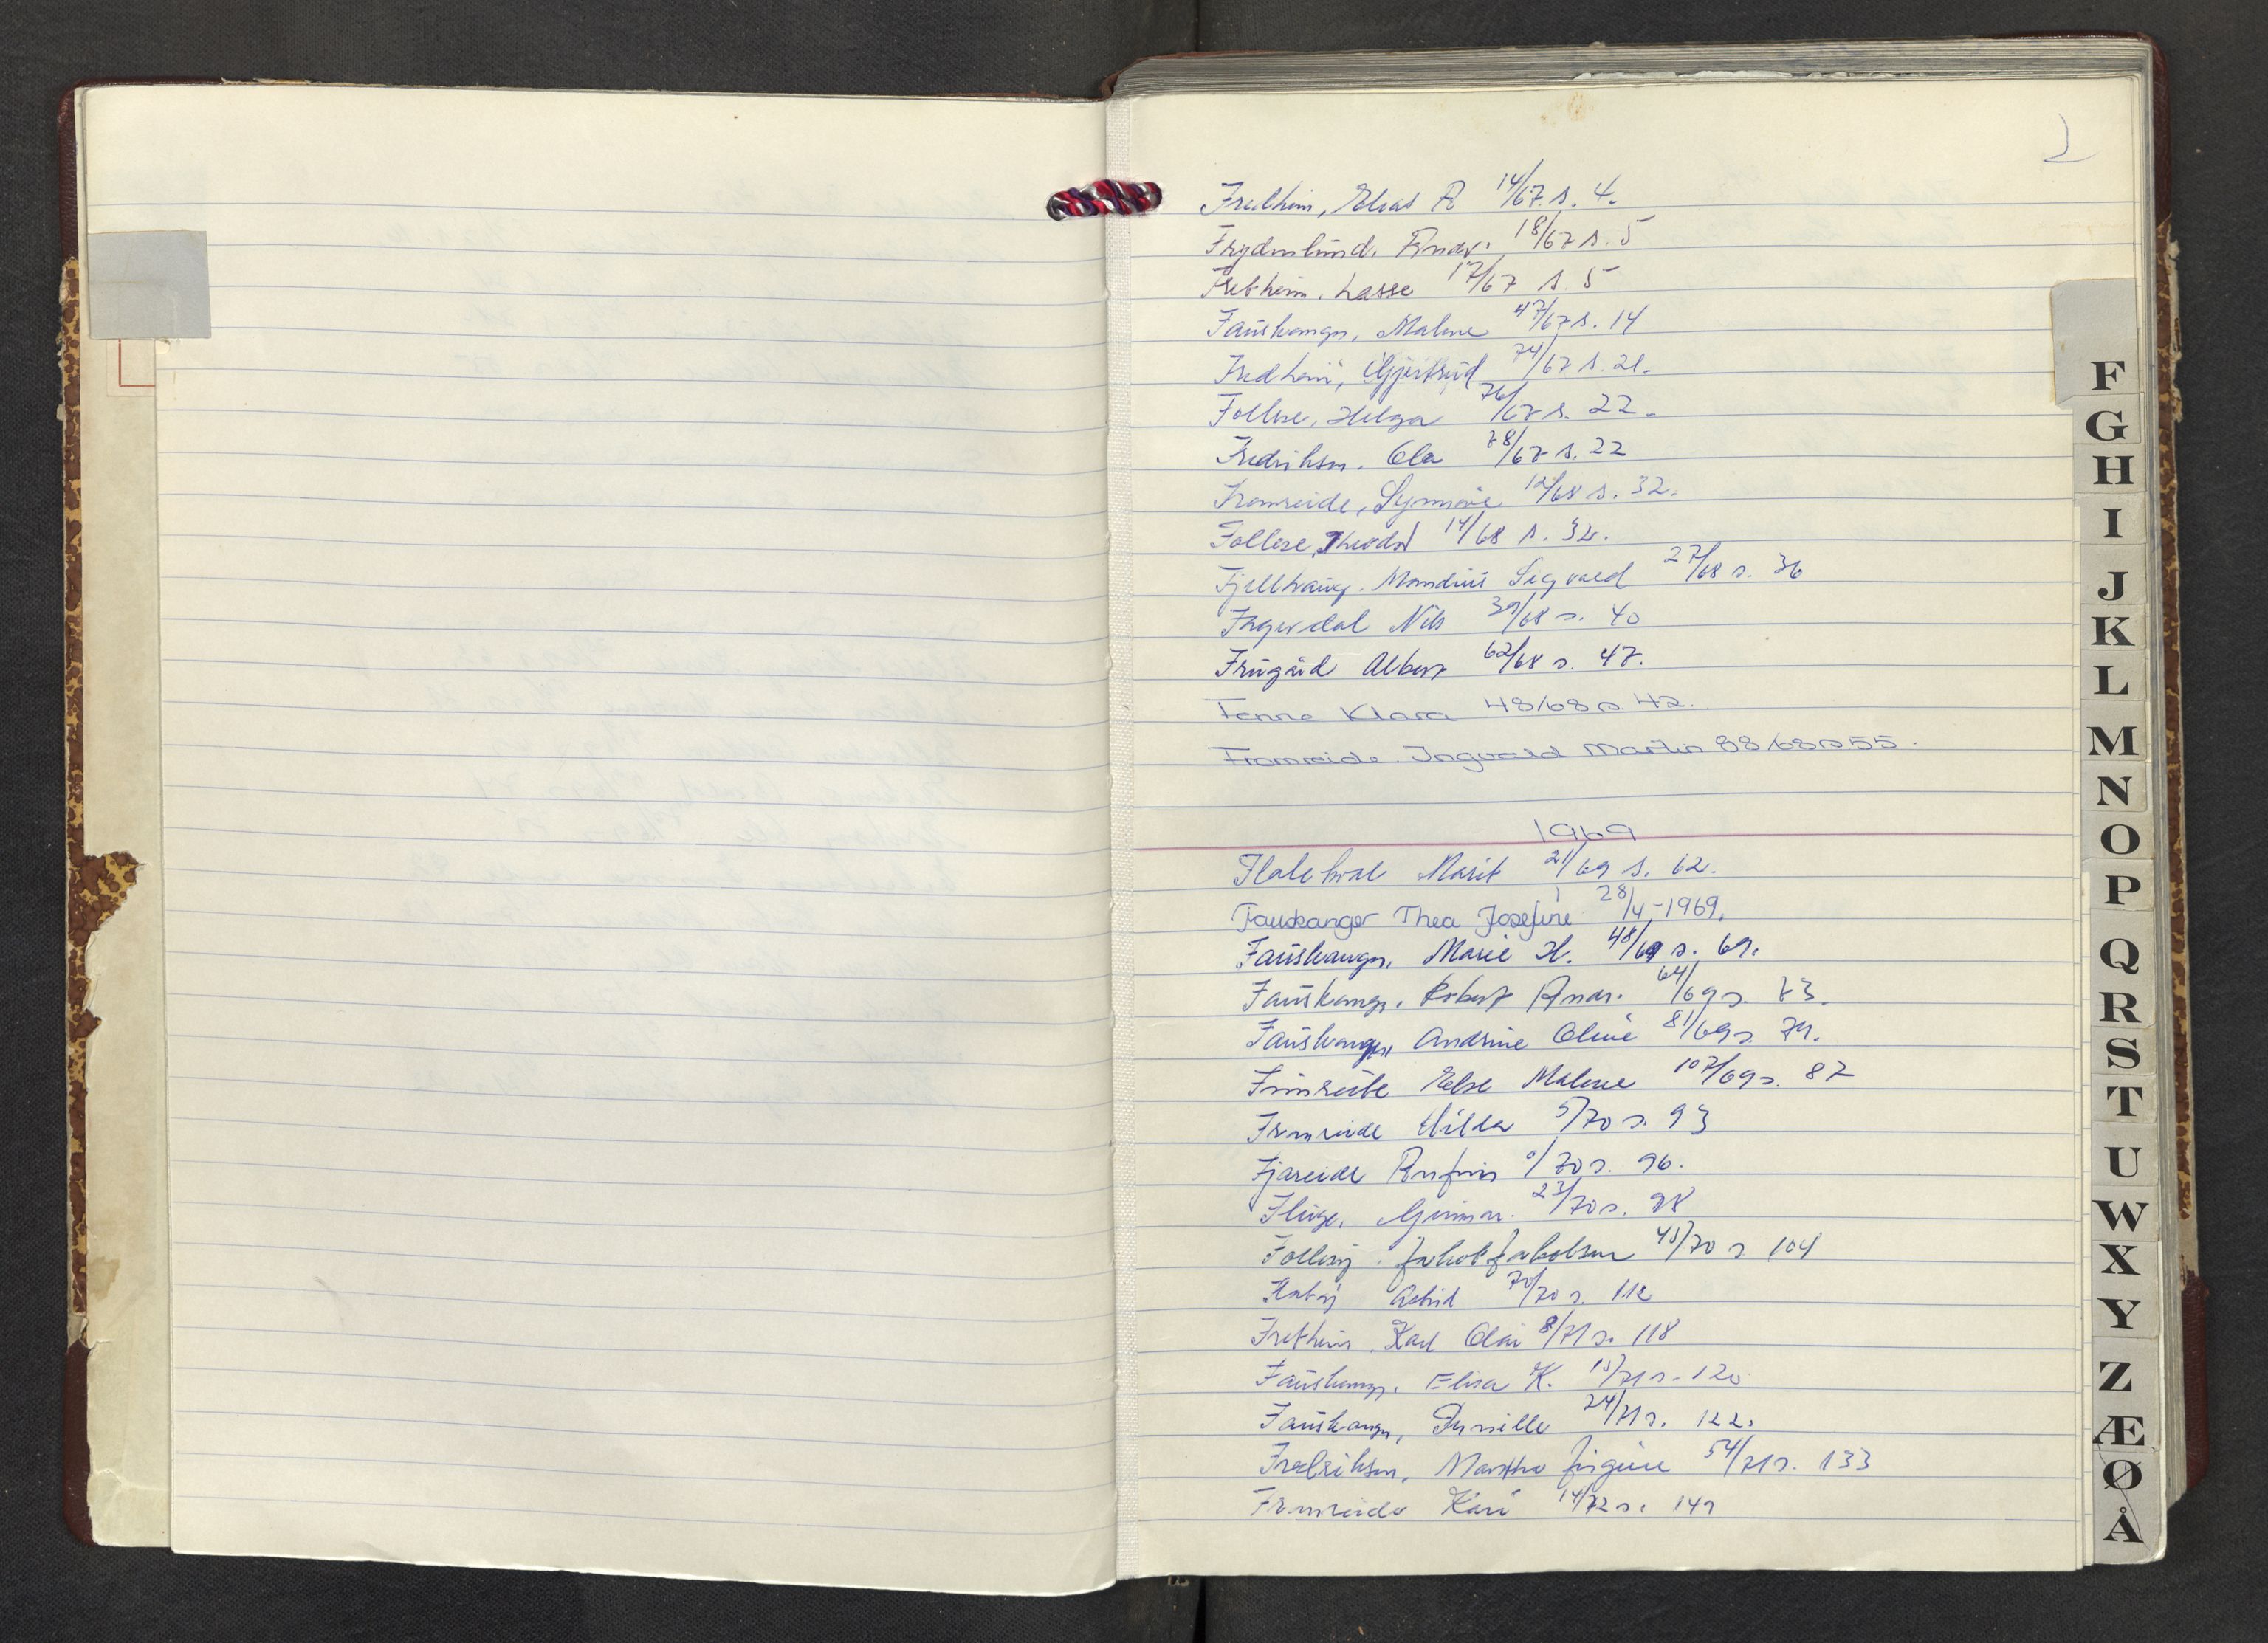 2
Fredheim, Elias A 14/67 s. 4.
Frydenlund, Andr. 18/67 s. 5
Fretheim, Lasse 17/67 s. 5
Fauskanger, Malene 47/67 s. 14
Fredheim, Gjertrud 74/67 s. 21.
Follese, Helga 76/67 s. 22.
Fredriksen, Ola 78/67 s. 22
Framreide, Synnøve 12/68 s. 32.
Follese, Theodor 14/68 s. 32.
Fjellhaug, Mandius Sigvald 27/68 s. 36
Fagerdal Nils 39/68 s. 40
Frugård Albert 62/68 s. 47.
Fenne Klara 48/68 s. 42.
Fromreide Ingvald Martin 88/68 s 55.
1969
Flatekval Marit 21/69 s. 62.
Fauskanger Thea Josefine 28/4-1969.
Fauskanger, Marie H. 48/69 s. 69.
Fauskanger, Robert Andr. 64/69 s. 73.
Fauskanger, Andrine Oline 81/69 s. 79.
Else Malene 107/69 s. 87
Framreide Hilda 5/70 s. 93
Fjæreide /70 s. 96.
Fluge, Gunnar. 23/70 s. 98
Jakob Jakobsen 45/70 s 104
Flatøy Astrid 70/70 s. 112
Fretheim Karl Olai 8/71 s. 118
Fauskanger, Elisa K. 15/71 s. 120
Fauskanger, Pernille 24/71 s. 122.
Fredriksen, Martha Jørgine 54/71 s. 133
Framreide Kari 14/72 s. 149
F
G
H
I
J
K
L
M
N
O
P
Q
R
S
T
U
W
X
Y
Z
Æ
Ø
Å